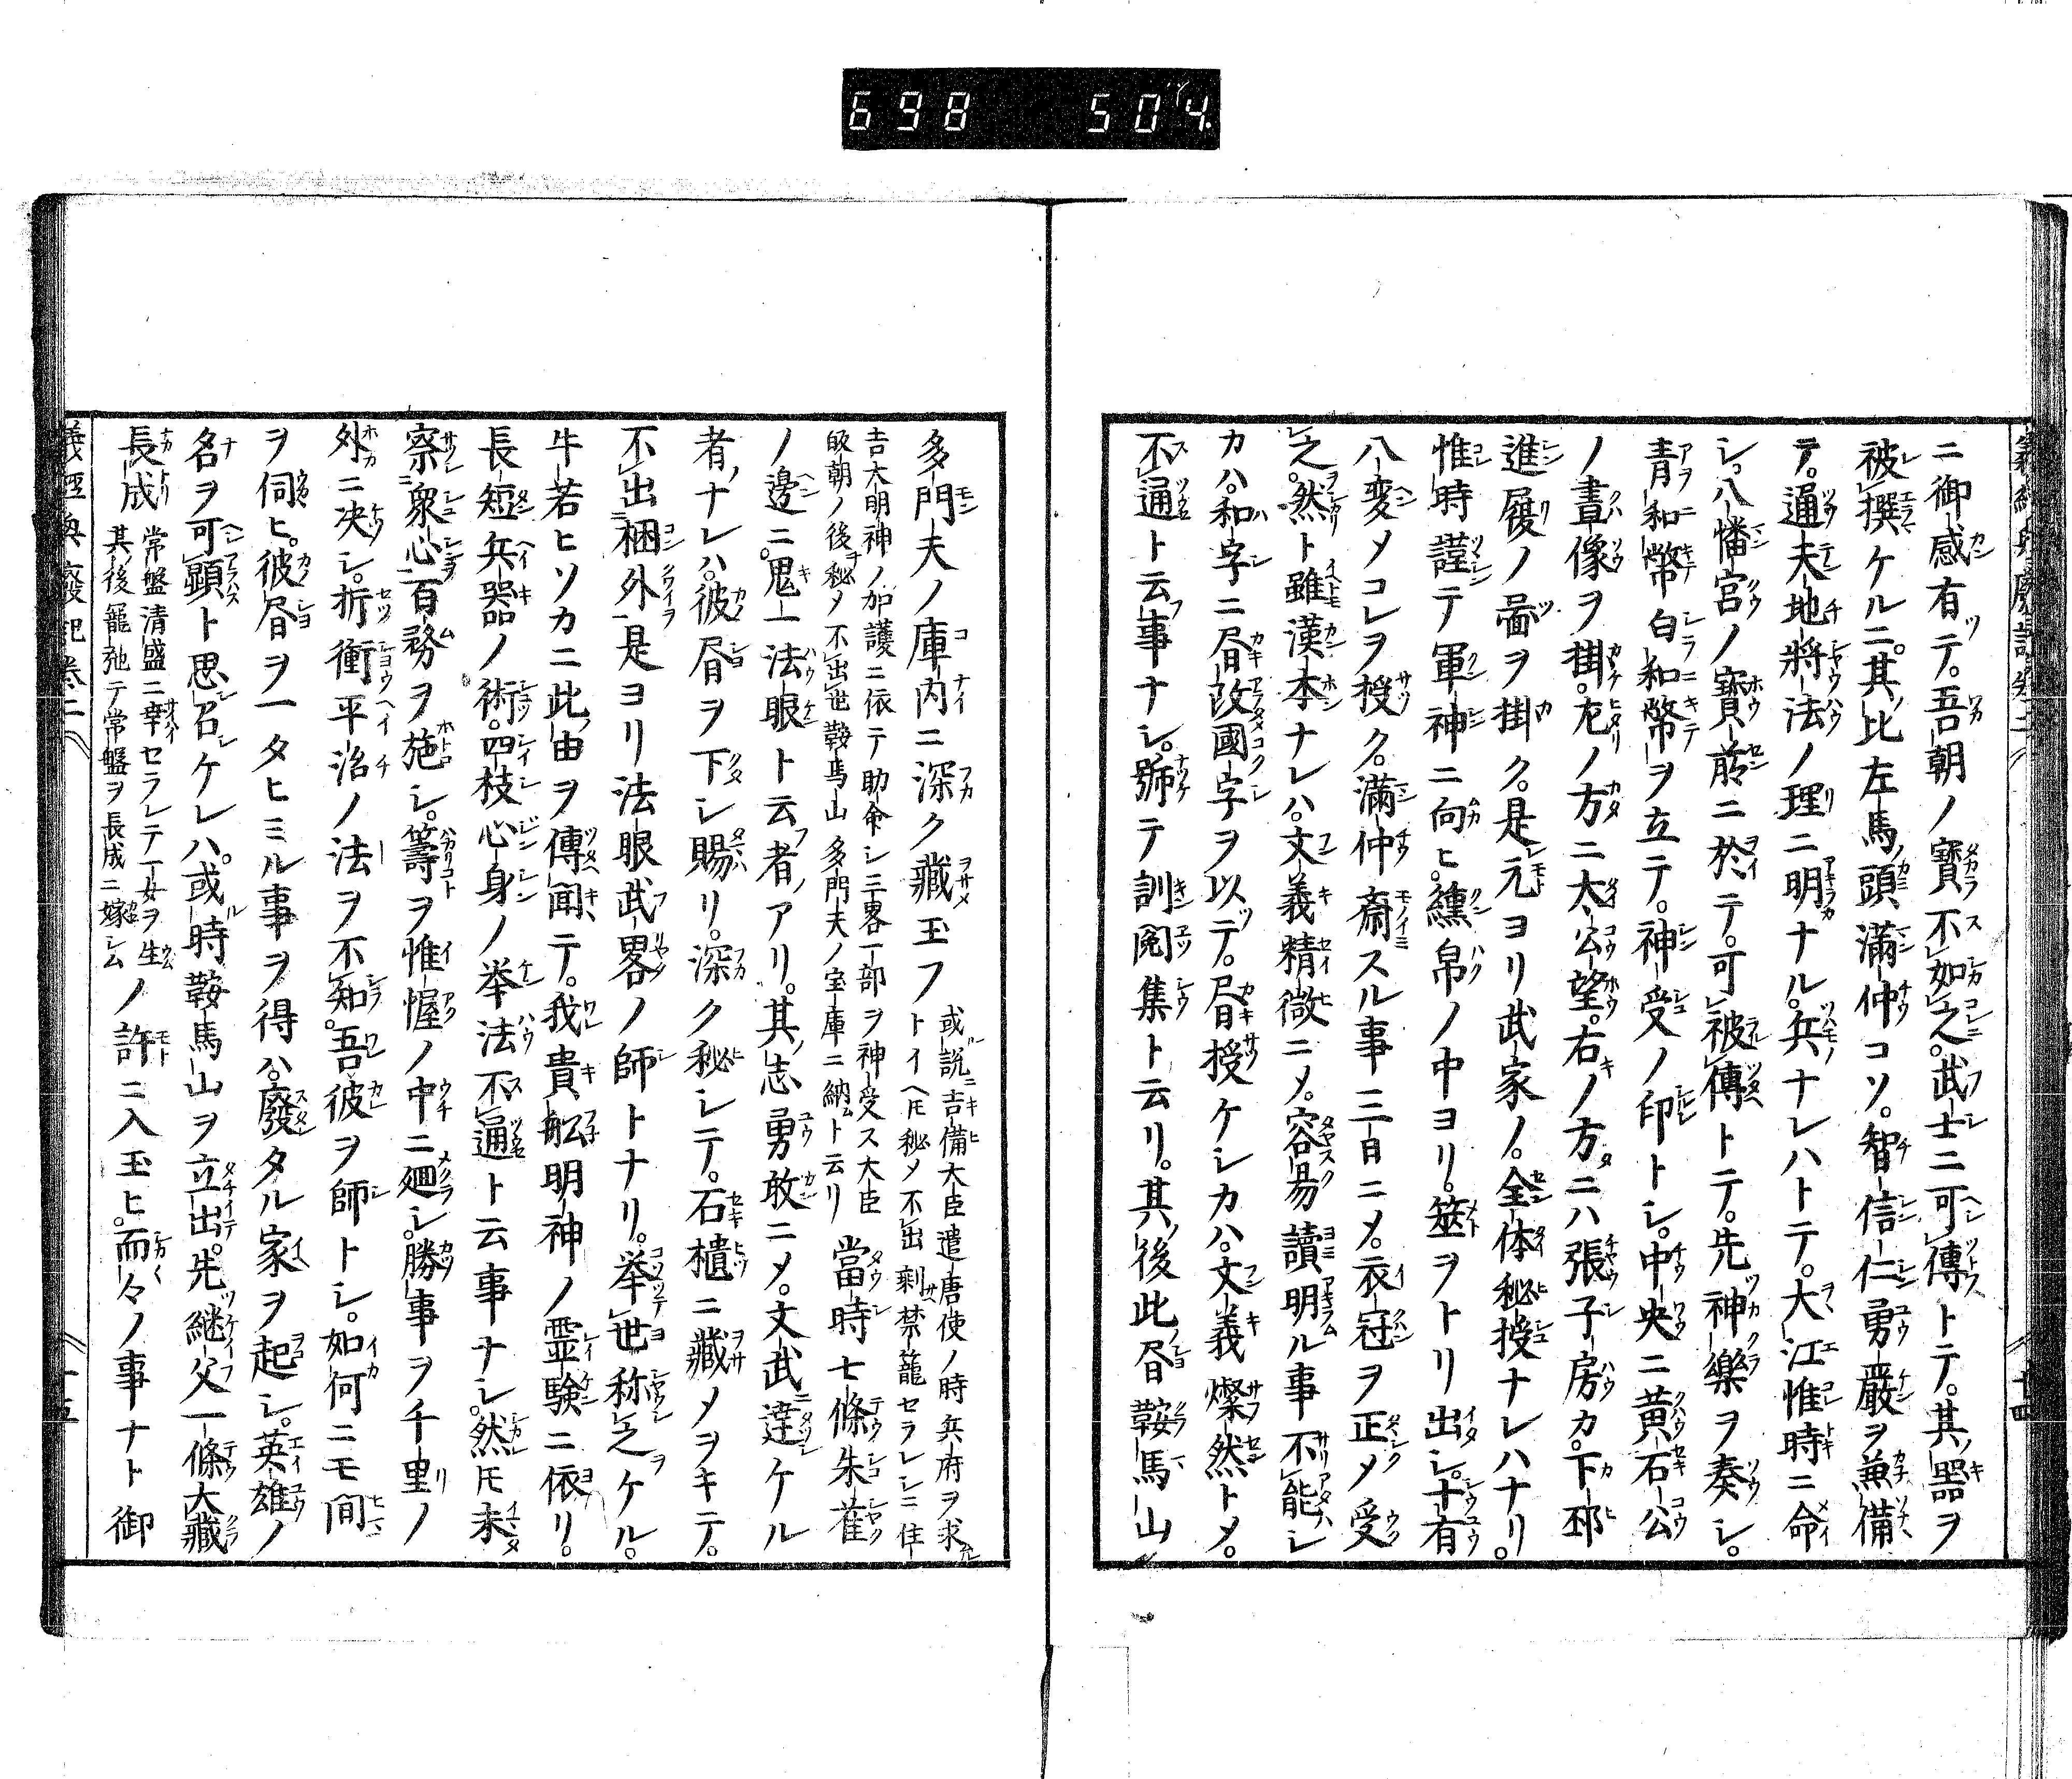 698 504
ニ御感有テ。吾朝ノ寳不如之。武士ニ可傳トテ。其器ヲ
被撰ケルニ。其比左馬頭滿仲コソ。智信仁勇嚴ヲ兼備
テ。通天地將法ノ理ニ明ナル。兵ナレハトテ。大江惟時ニ命
シ。八幡宮ノ寳前ニ於テ。可被傳トテ。先神樂ヲ奏シ。
青和幣白和幣ヲ立テ。神受ノ印トシ。中央ニ黄石公
ノ畫像ヲ掛。左ノ方ニ太公望。右ノ方ニハ張子房カ。下邳
進履ノ啚ヲ掛ク。是元ヨリ武家ノ。全体秘授ナレハナリ。
惟時謹テ軍神ニ向ヒ。纁帛ノ中ヨリ。筮ヲトリ出シ。十有
八変メコレヲ授ク。滿仲齋スル事三日ニメ。衣冠ヲ正メ受
之。然ト雖漢本ナレハ。文義精微ニメ。容易讀明ル事不能シ
カハ。和字ニ昏改國字ヲ以テ。昏授ケシカハ。文義燦然トメ。
不通ト云事ナシ。號テ訓閲集ト云リ。其後此昏鞍馬山
義經興廢記卷二 十四
多門夫ノ庫内ニ深ク藏玉フ 或説ニ吉備大臣遣唐使ノ時兵府ヲ求
トイヘ𪜈秘メ不出剰禁籠セラレシニ住
吉大明神ノ加護ニ依テ助命シ三畧一部ヲ神受ス大臣
皈朝ノ後秘メ不出世鞍馬山多門夫ノ宝庫ニ納ムト云リ 當時七條朱雀
ノ邊ニ。鬼一法眼ト云者アリ。其志勇敢ニメ。文武達ケル
者ナレハ。彼昏ヲ下シ賜リ。深ク秘シテ。石櫃ニ藏メヲキテ。
不出梱外。是ヨリ法眼武畧ノ師トナリ。挙世称之ケル。
牛若ヒソカニ此由ヲ傳聞テ。我貴舩明神ノ霊験ニ依リ。
長短兵器ノ術。四枝心身ノ挙法不通ト云事ナシ。然𪜈未
察衆心百務ヲ施シ。籌ヲ惟幄ノ中ニ廻シ。勝事ヲ千里ノ
外ニ决シ。折衝平治ノ法ヲ不知。吾彼ヲ師トシ。如何ニモ間
ヲ伺ヒ。彼昏ヲ一タヒミル事ヲ得ハ。廢タル家ヲ起シ。英雄ノ
名ヲ可顕ト思召ケレハ。或時鞍馬山ヲ立出。先継父一條大藏
長成 常盤清盛ニ幸セラレテ一女ヲ生
其後寵弛テ常盤ヲ長成ニ嫁シム ノ許ニ入玉ヒ。而々ノ事ナト御
義經興廢記卷二 十五